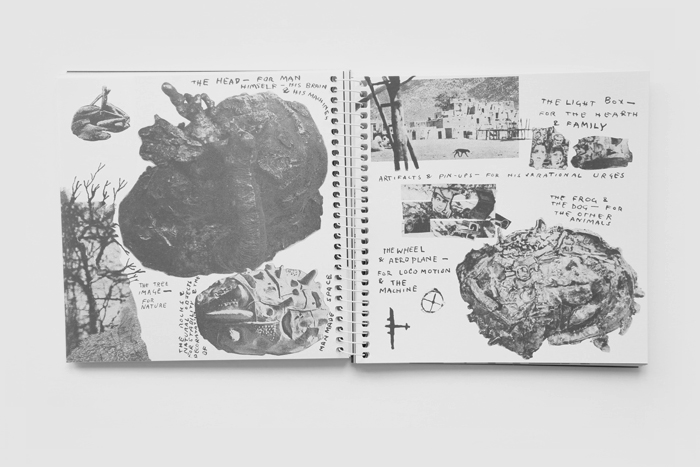 THE HEAD — FOR MAN
HIMSELF — HIS BRAIN
& HIS MACHINE
THE TREE
IMAGE —
FOR
NATURE
THE ROCKS &
NATURAL OBJECTS
FOR STABILITY &
DECORATION
OF
MAN MADE SPACE
THE LIGHT BOX —
FOR THE HEARTH
& FAMILY
ARTIFACTS & PIN-UPS — FOR HIS IRRATIONAL URGES
THE FROG &
THE DOG — FOR
THE OTHER
ANIMALS
THE WHEEL
& AEROPLANE —
FOR LOCOMOTION
& THE
MACHINE